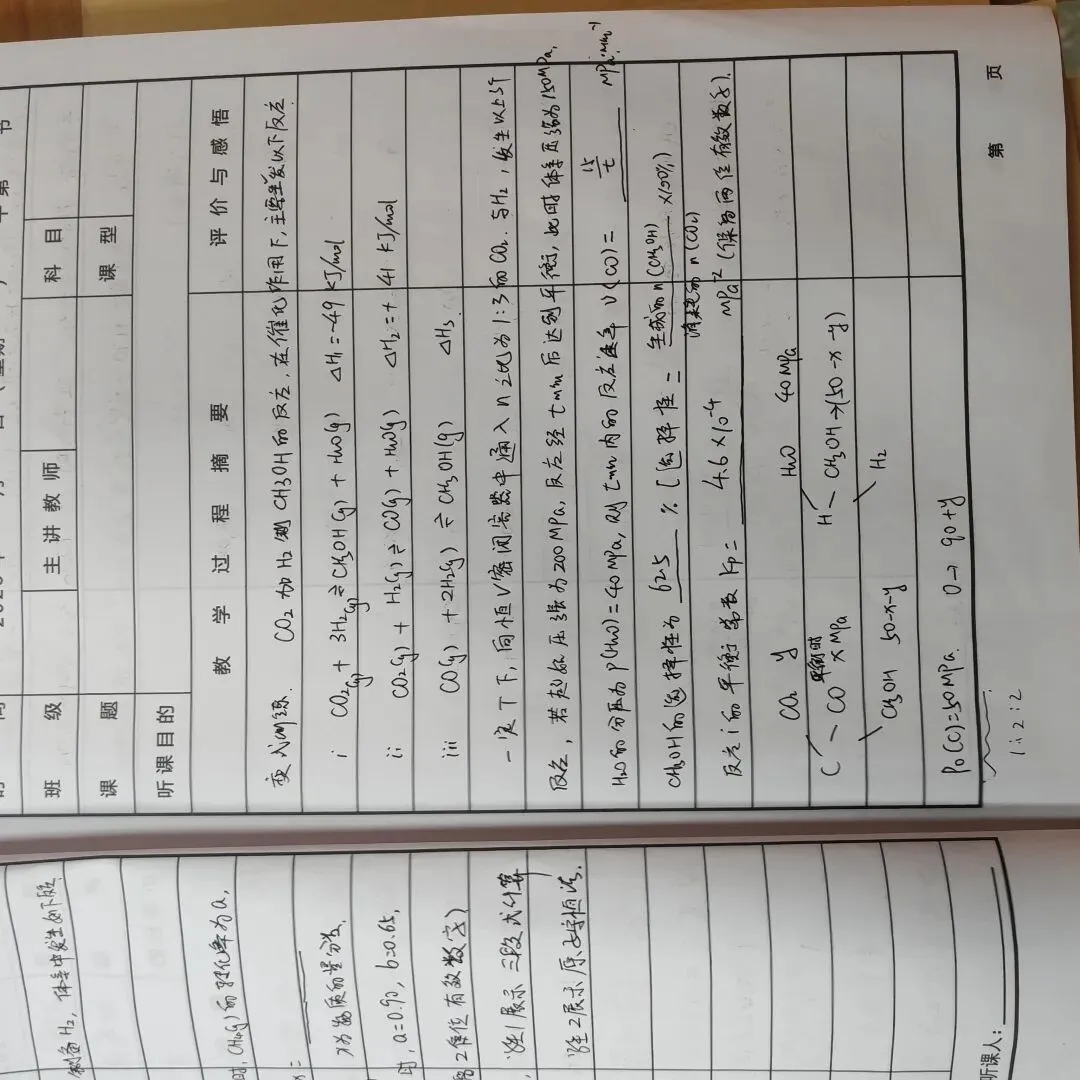 节
年第
班 级
科 目
课 题
主 讲 教 师
课 型
听课目的
教 学 过 程 摘 要
评 价 与 感 悟
变式训练. CO2加H2制CH3OH的反应, 在催化作用下, 主要发生以下反应
i CO2(g) + 3H2(g) ⇌ CH3OH(g) + H2O(g) ΔH1=-49 KJ/mol
ii CO2(g) + H2(g) ⇌ CO(g) + H2O(g) ΔH2=+41 KJ/mol
iii CO(g) + 2H2(g) ⇌ CH3OH(g) ΔH3.
一定T下, 向恒V密闭容器中通入n之比为1:3的CO2与H2, 发生以上3个
反应, 若起始压强为200MPa, 反应经tmin后达到平衡, 此时体系压强为150MPa,
H2O的分压为P(H2O)=40MPa, 则tmin内的反应速率 V(CO)= 15/t MPa·min-1
CH3OH的选择性为 62.5 % [选择性= 生成的n(CH3OH) / 消耗的n(CO2) ×100%]
反应i的平衡常数Kp= 4.6×10-4 MPa-2 (保留两位有效数字).
CO2 y H2O 40MPa
C — CO 平衡时 xMPa H — CH3OH→(50-x-y)
CH3OH 50-x-y H2
P0(C)=50MPa. O→ 90+y
1:2:2
第 页
制备H2, 体系中发生如下反应
时, CH4(g)的转化率为a,
为物质的量分数.
时, a=0.90, b=0.65,
留2位有效数字)
生1展示 三段式计算
生2展示 原子守恒法.
听课人: